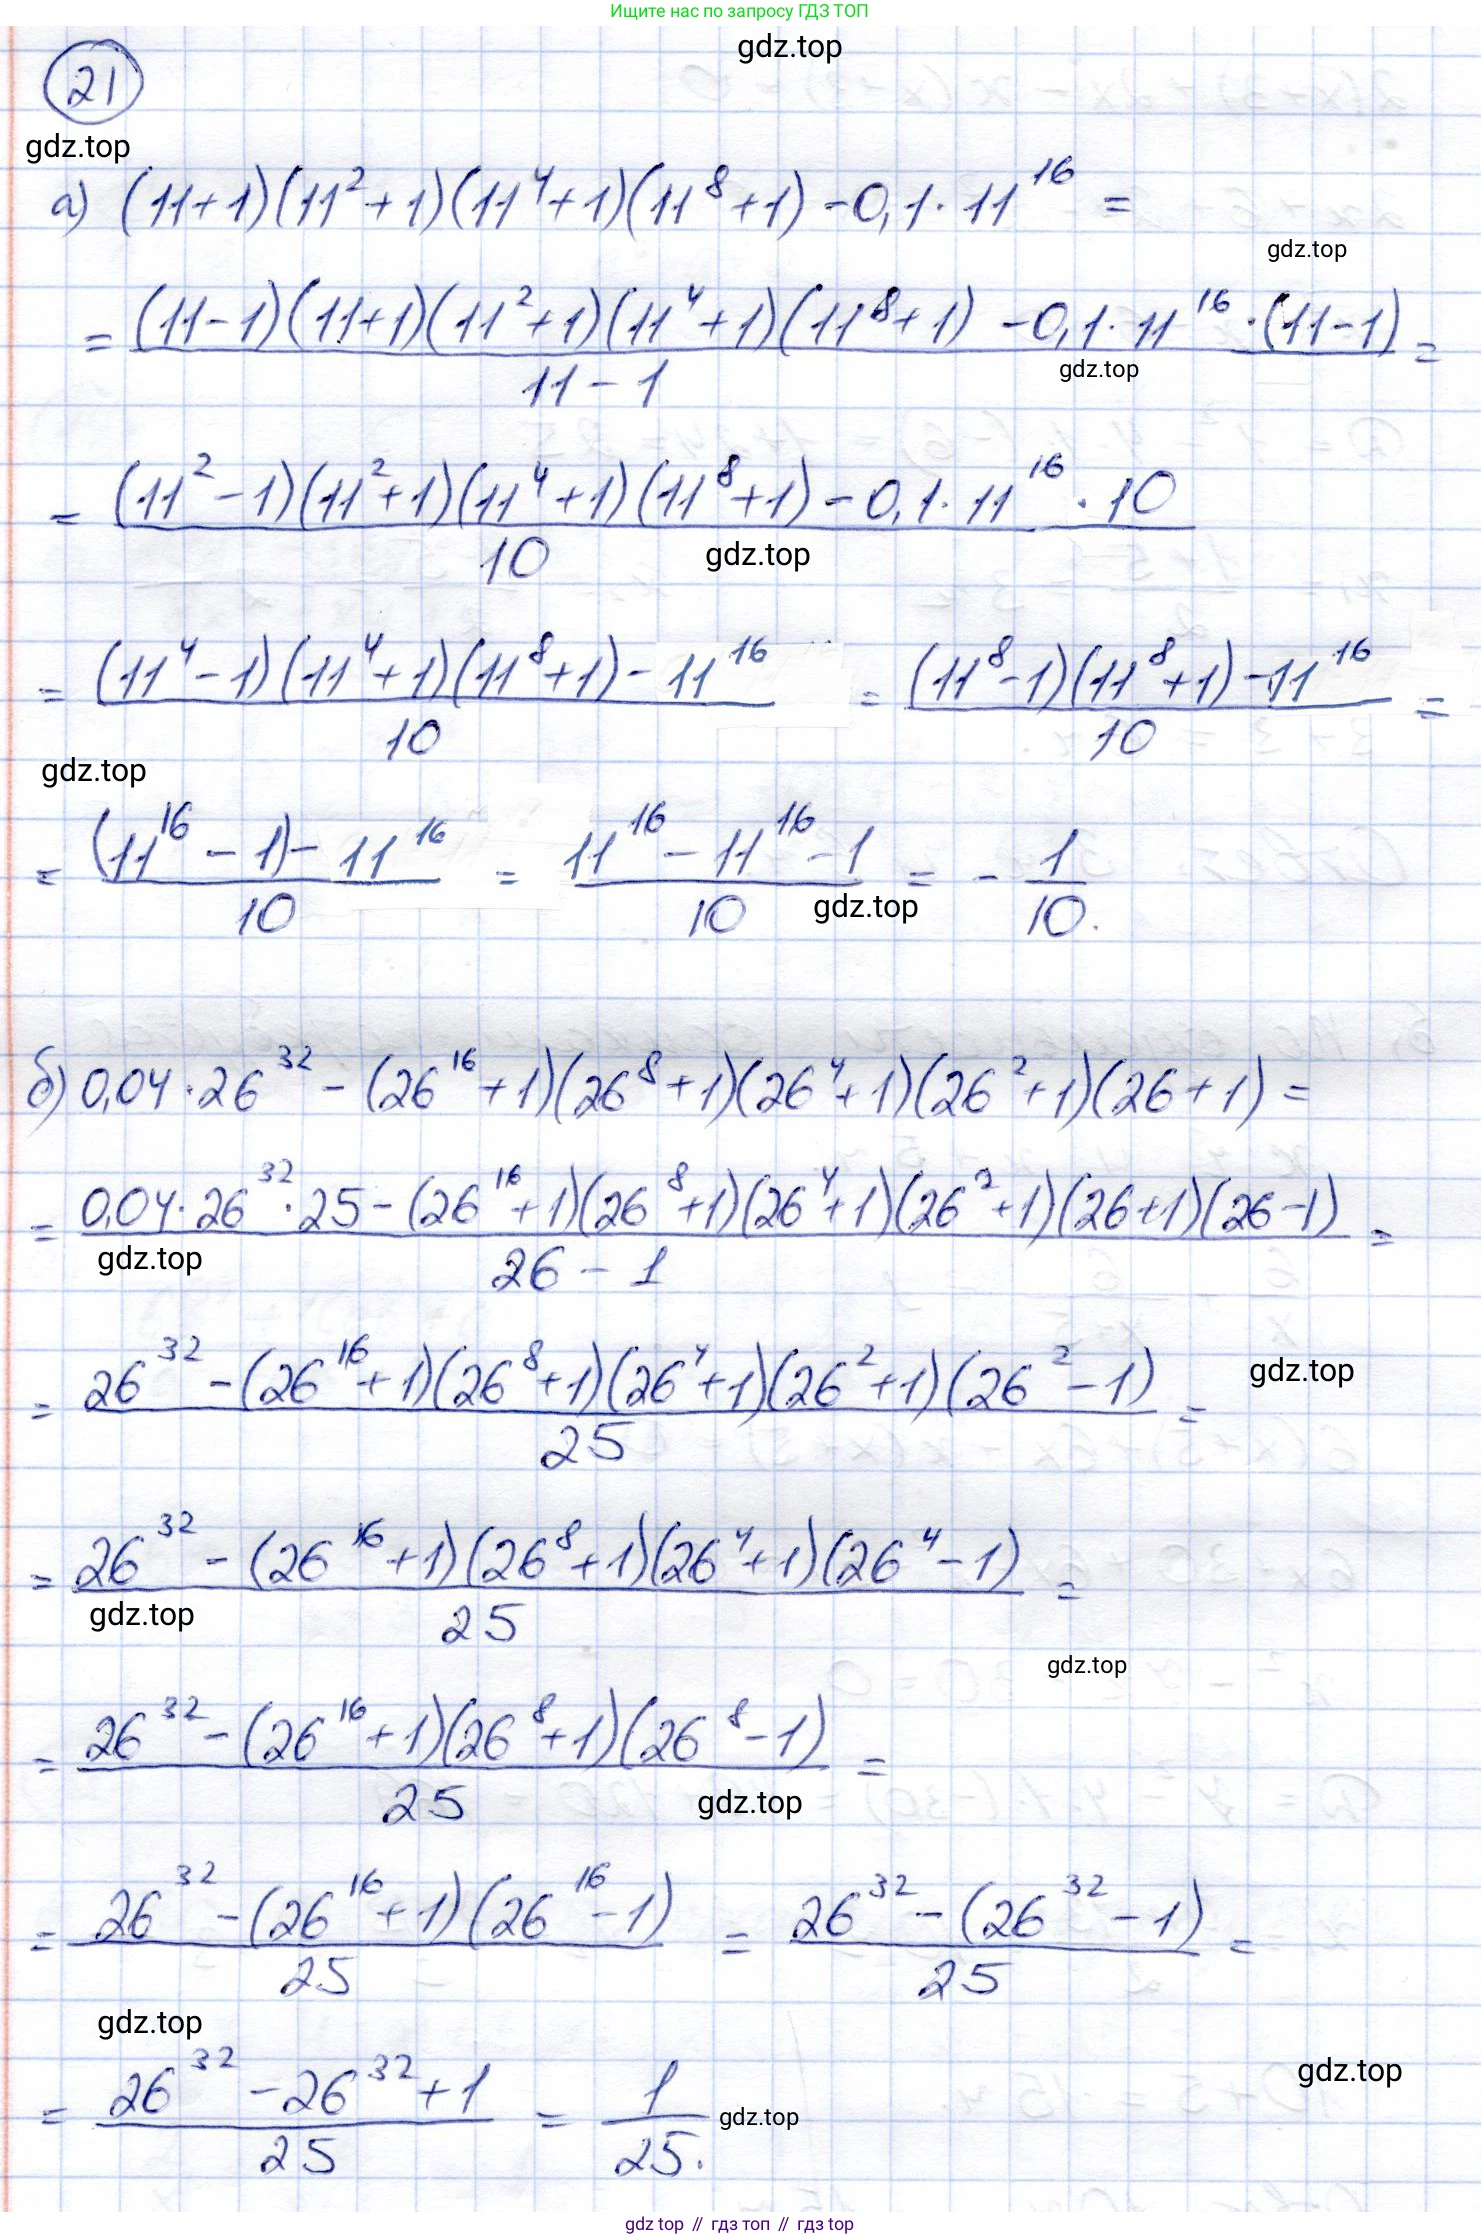 Ищите нас по запросу ГДЗ ТОП
gdz.top
21
gdz.top
а) (11+1)(11²+1)(11⁴+1)(11⁸+1) - 0,1·11¹⁶ =
gdz.top
= ((11-1)(11+1)(11²+1)(11⁴+1)(11⁸+1) - 0,1·11¹⁶·(11-1))/(11-1) =
gdz.top
= ((11²-1)(11²+1)(11⁴+1)(11⁸+1) - 0,1·11¹⁶·10)/10
gdz.top
= ((11⁴-1)(11⁴+1)(11⁸+1) - 11¹⁶)/10 = ((11⁸-1)(11⁸+1) - 11¹⁶)/10 =
gdz.top
= ((11¹⁶-1) - 11¹⁶)/10 = (11¹⁶ - 11¹⁶ - 1)/10 = -1/10.
gdz.top
б) 0,04·26³² - (26¹⁶+1)(26⁸+1)(26⁴+1)(26²+1)(26+1) =
= (0,04·26³²·25 - (26¹⁶+1)(26⁸+1)(26⁴+1)(26²+1)(26+1)(26-1))/(26-1) =
gdz.top
= (26³² - (26¹⁶+1)(26⁸+1)(26⁴+1)(26²+1)(26²-1))/25 =
gdz.top
= (26³² - (26¹⁶+1)(26⁸+1)(26⁴+1)(26⁴-1))/25 =
gdz.top
gdz.top
= (26³² - (26¹⁶+1)(26⁸+1)(26⁸-1))/25 =
gdz.top
= (26³² - (26¹⁶+1)(26¹⁶-1))/25 = (26³² - (26³²-1))/25 =
gdz.top
gdz.top
= (26³² - 26³² + 1)/25 = 1/25.
gdz.top
gdz top // гдз топ // gdz.top